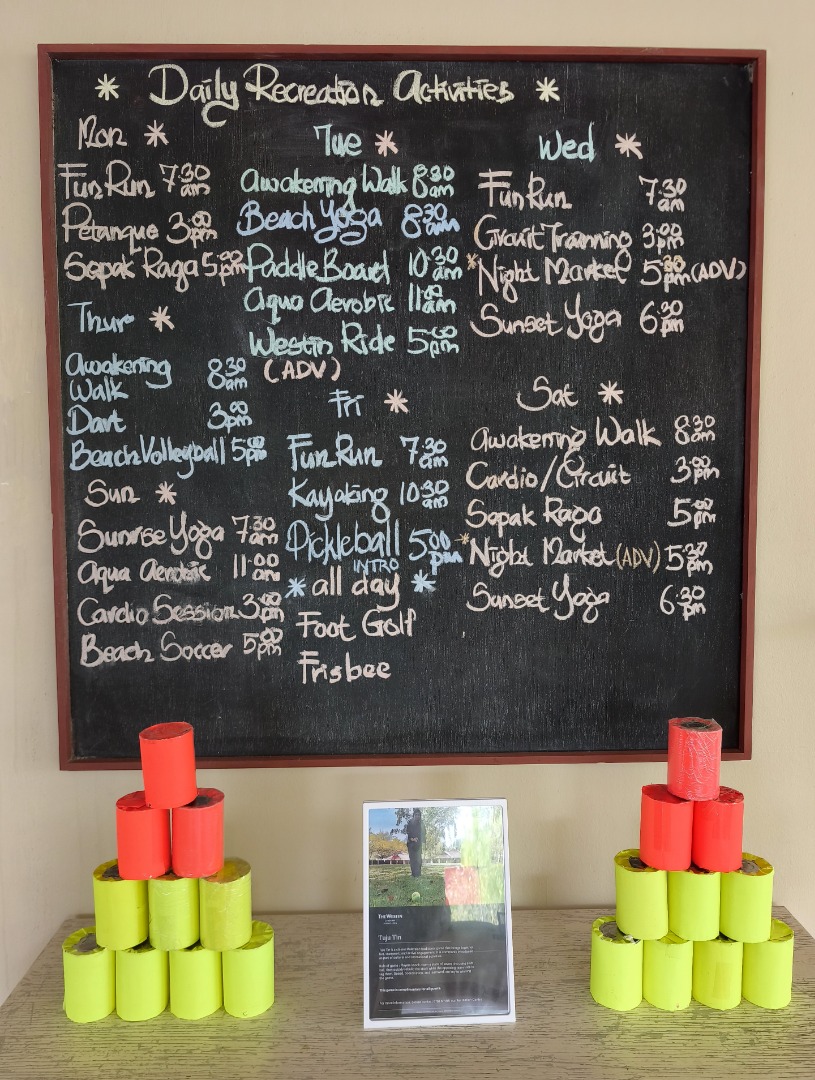 * Daily Recreation Activities *
Mon *
Fun Run 7:30 am
Petanque 3:00 pm
Sepak Raga 5:00 pm
Tue *
Awakening Walk 8:30 am
Beach Yoga 8:30 am
Paddle Board 10:30 am
Aqua Aerobic 11:00 am
Westin Ride 5:00 pm
(ADV)
Wed *
Fun Run 7:30 am
Circuit Tranning 3:00 pm
*Night Market 5:30 pm (ADV)
Sunset Yoga 6:30 pm
Thur *
Awakening
Walk 8:30 am
Dart 3:00 pm
Beach Volleyball 5:00 pm
Fri *
Fun Run 7:30 am
Kayaking 10:30 am
Pickleball 5:00 pm
INTRO
Sat *
Awakening Walk 8:30 am
Cardio/Circuit 3:00 pm
Sepak Raga 5:00 pm
*Night Market (ADV) 5:30 pm
Sunset Yoga 6:30 pm
Sun *
Sunrise Yoga 7:30 am
Aqua Aerobic 11:00 am
Cardio Session 3:00 pm
Beach Soccer 5:00 pm
* all day *
Foot Golf
Frisbee
THE WESTIN
Tuju Tin